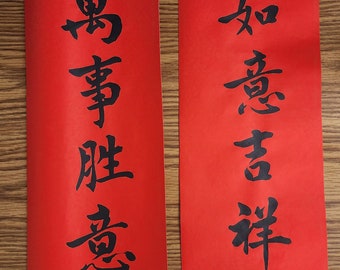 如意吉祥
萬事胜意